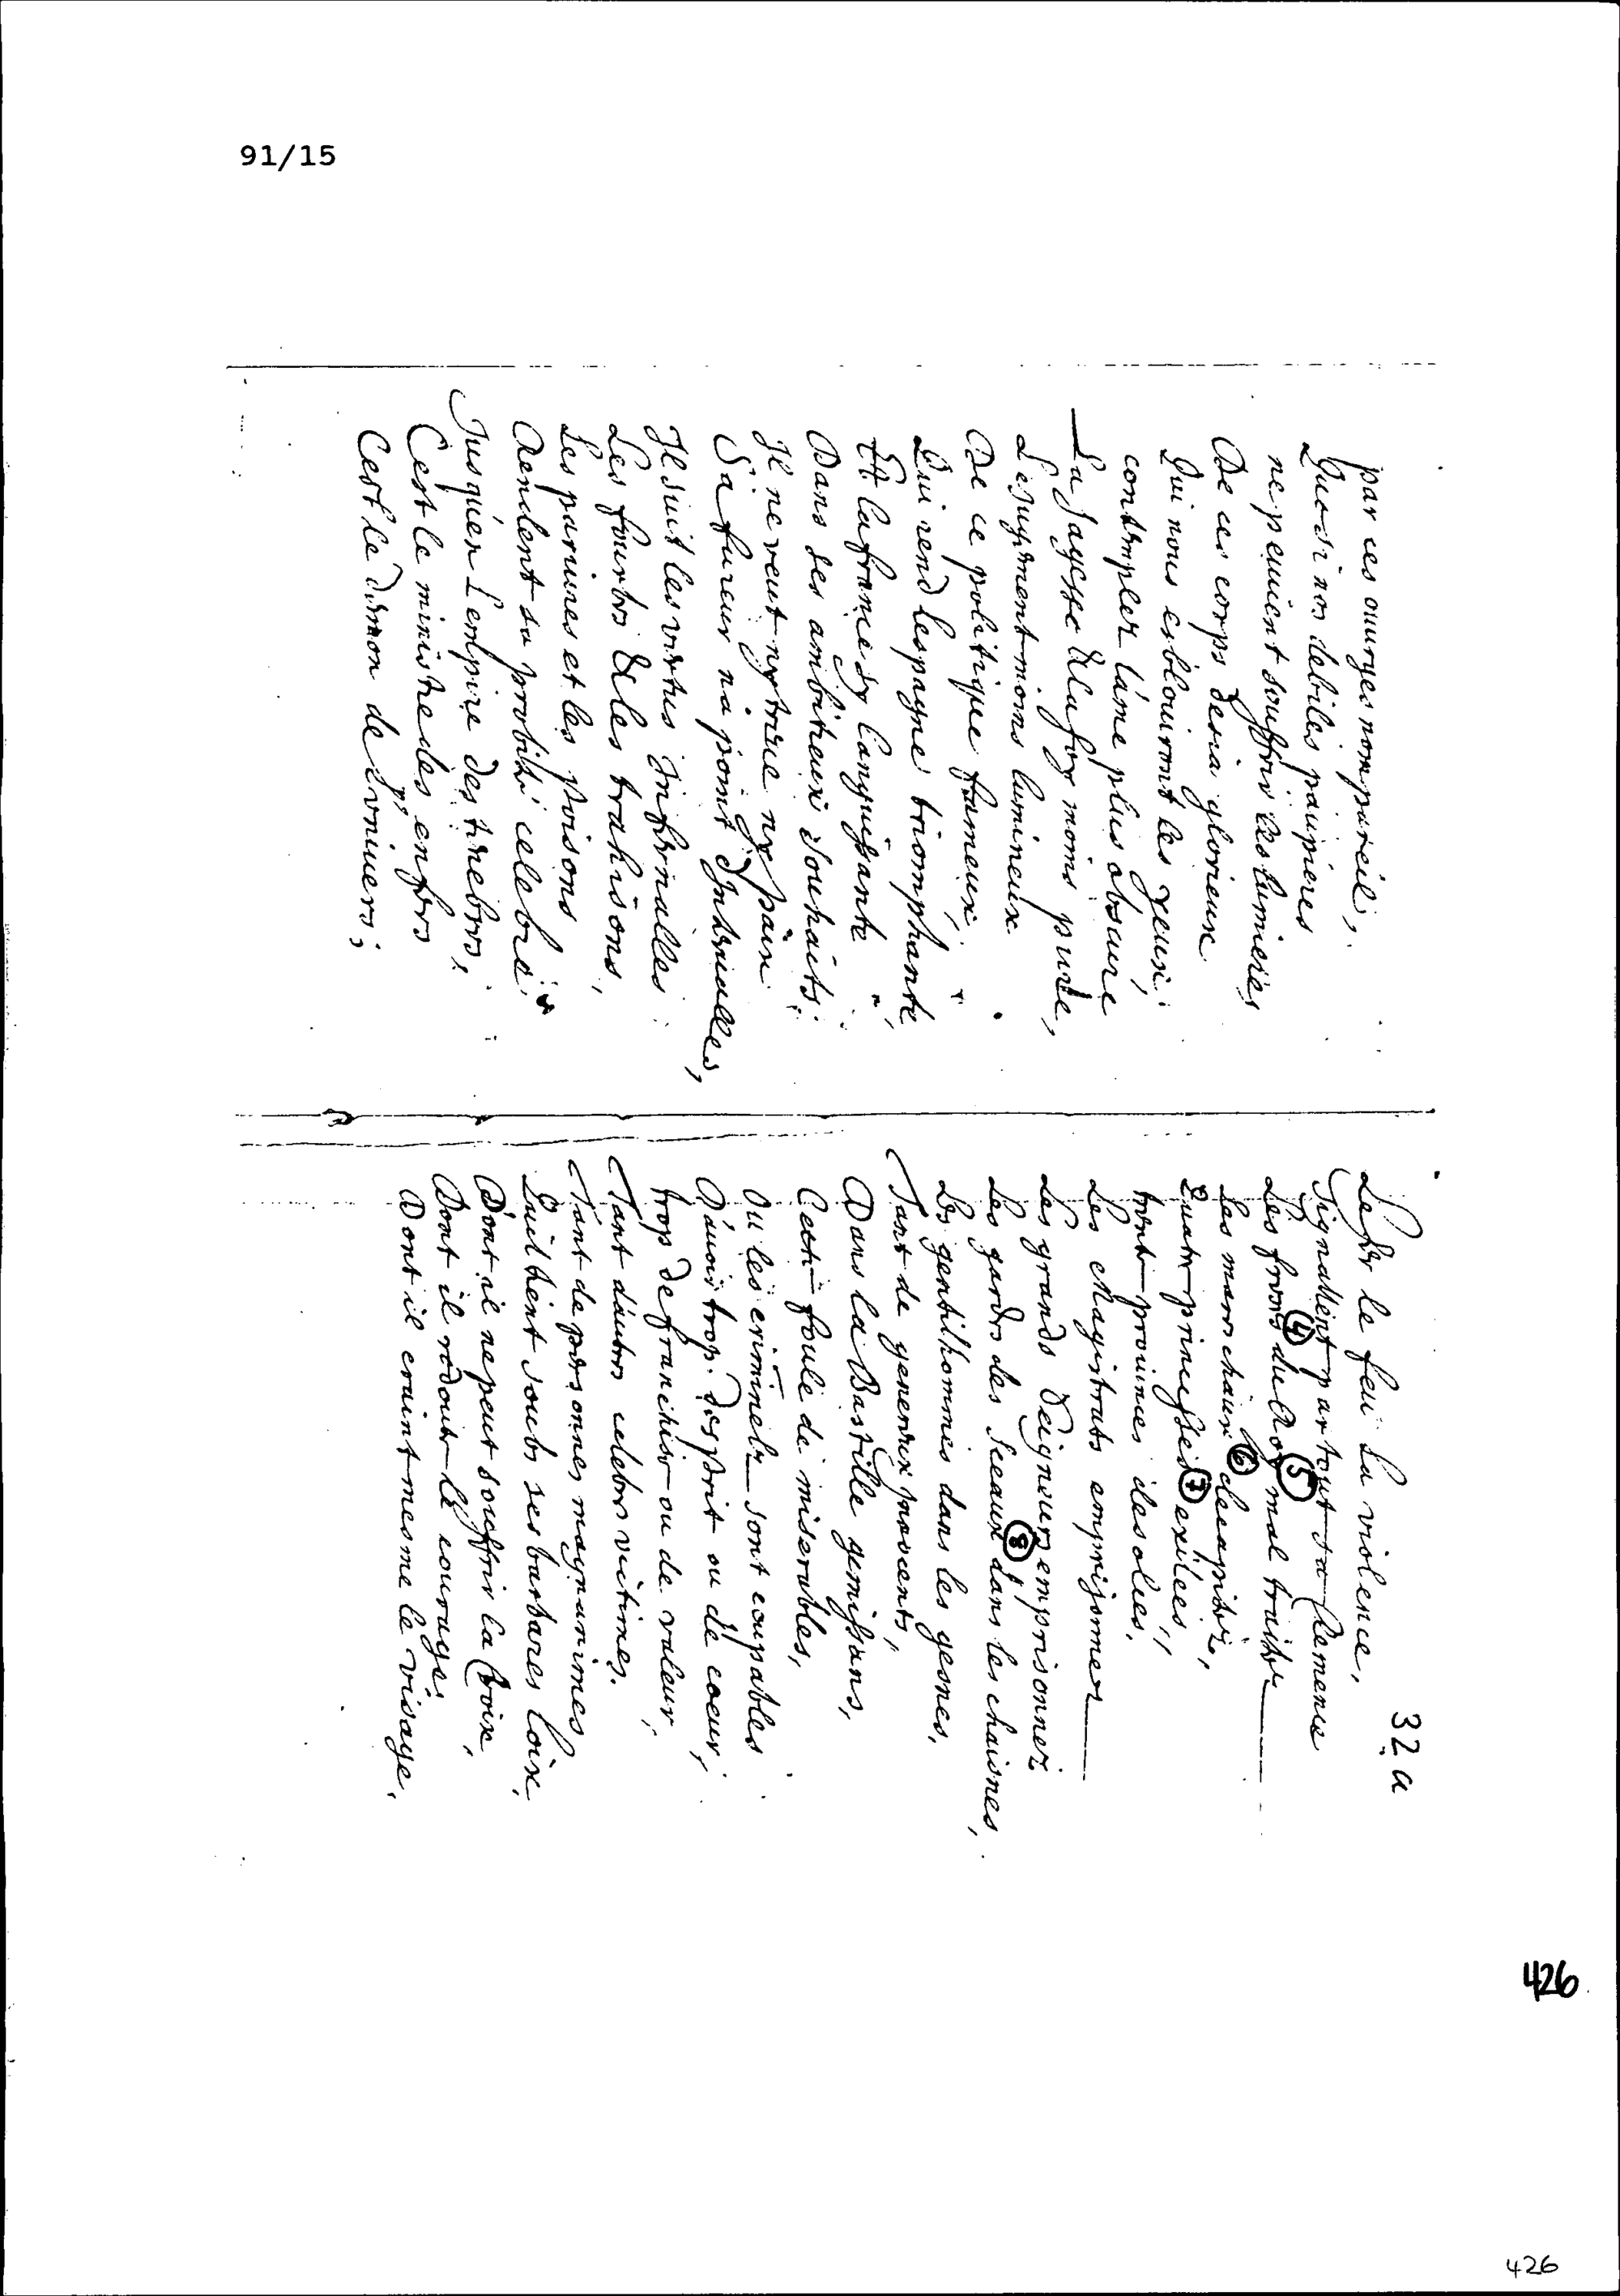 91/15
par ces ouurges nompareil,
Que si nos debiles paupieres
ne peuuient souffrir les lumieres
De ces corps desia glorieux
Qui nous esblouiront les yeux;
contempler l'ame plus obscure
La sagesse & la foy moins pure,
Le Jugement moins lumineux
De ce politique fameux,
Qui rend lespagne triomphante
Et la france sy languissante
Dans ses ambitieux souhaits;
Il ne veut ny treue ny paix
Sa fureur na point d'Interualles,
Il suit les vertus Infernalles
Les fourbes & les trahisons,
Les pariures et les poisons
Rendent sa probité celebre
Jusqu'en Lempire des tenebres,
C'est le ministre des enfers
C'est le demon de lvniuers;
32 a
Le fer le feu La violence,
Signallent par tout sa Clemence
Les freres (4) du Roy (5) mal traitte
Les mareschaux (6) decapitez,
Quatre princesses (7) exilées,
trente prouinces desolees,
Les Magistrats emprisonnez
Les grands Seigneurs emprisonnez
Les gardes des Sceaux (8) dans les chaisnes,
Les gentilhommes dans les gesnes,
Tant de genereux Jnnocents,
Dans la Bastille gemissans,
Cette foule de miserables,
Ou les criminelz sont coupables
D'auoir trop d'esprit ou de coeur,
trop de franchise ou de valeur,
Tant d'autres celebres victimes,
Tant de personnes magnanimes
Quil tient soubs ses barbares loix,
Dont il ne peut souffrir la voix,
Dont il redoute le courage,
Dont il craint mesme le visage,
426
426